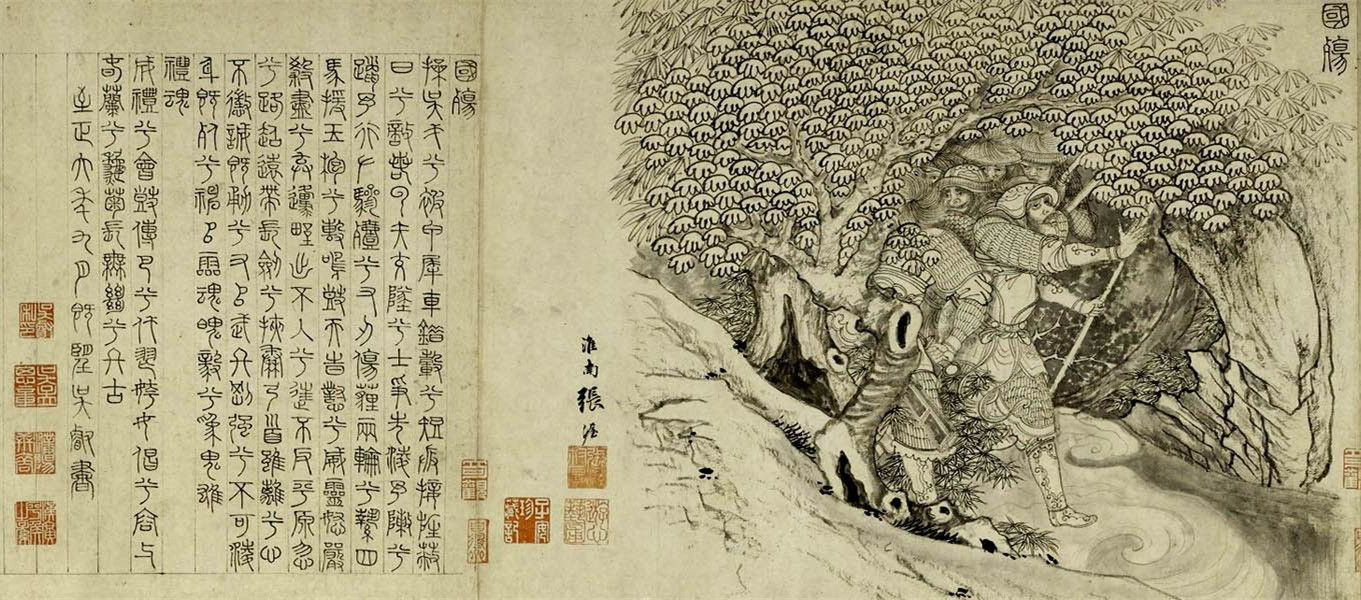 國殤
淮南張渥
國殤
操吳戈兮被甲犀車錯轂兮短兵接旌蔽
日兮敵若雲矢交墜兮士爭先凌余陳兮
躐余行左驂殪兮右刃傷霾兩輪兮縶四
馬援玉枹兮擊鳴鼓天旹懟兮威靈怒嚴
殺盡兮棄原壄出不入兮往不反平原忽
兮路超遠帶長劍兮挾秦弓首雖離兮心
不懲誠既勇兮又以武終剛強兮不可凌
身既死兮神以靈魂魄毅兮為鬼雄
禮魂
成禮兮會鼓傳芭兮代舞姱女倡兮容與
春蘭兮秋菊長無絕兮終古
至正六年九月既望吳叡書